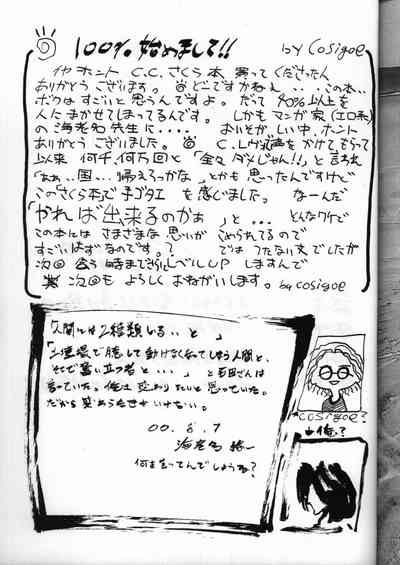 100% 始めまして!! by cosigoe
イヤ ホント C.C.さくら本、買って くださったん
ありがとう ございます。 どこですかねぇ … この本…
ボクは すごいと 思うんですよ。 だって 90%以上を
人に まかせてしまってるんです。 しかも マンガ家(エロ系)
の 海老名先生に‥‥ おいそがしい中、ホント
ありがとう ございました。
以来 何千、何万回と 「全々 ダメじゃん!!」と 言われ
「なぁ、国… 帰えろっかな」とかも 思ったんですけど
この「さくら本」で 手ゴタエ を 感じました。 なーんだ
「やれば 出来るのかぁ 」 と … とんなワケで
この本には さまざまな 思いが こめられてるので
すごいはず なのです。? では つたない文 でしたが
次回 会う 時まで さらに レベルUP しますんで
次回も よろしく おねがいします。 by cosigoe
「人間には 2種類いる‥と」
「土壇場で 臆して 動けなくなってしまう人間と、
そこで 奮い立つ者と・・・」 と 石田さんは
言っていた。 俺は 変わりたいと 思っていた。
だから 笑わらなきゃ いけない。
00. 8. 7
何を言ってんでしょうね?
cosigoe?
俺?